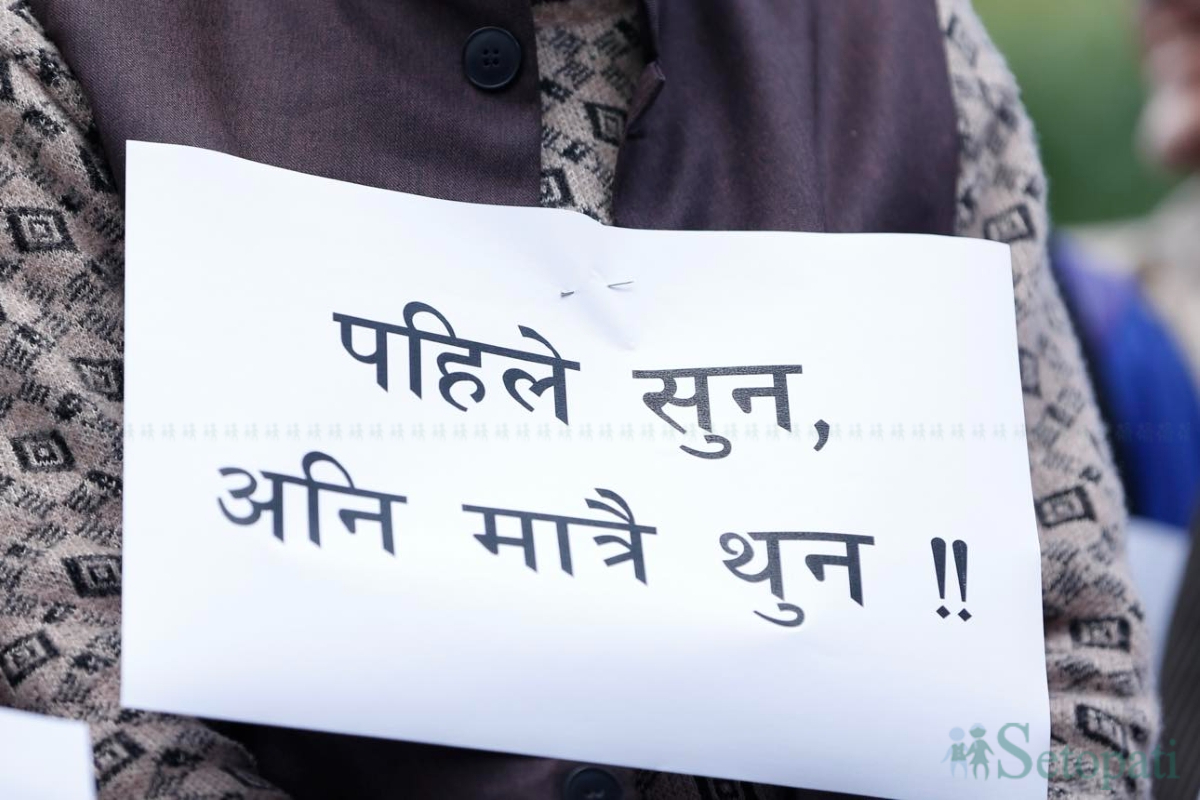 पहिले सुन,
अनि मात्रै थुन !!
Setopati